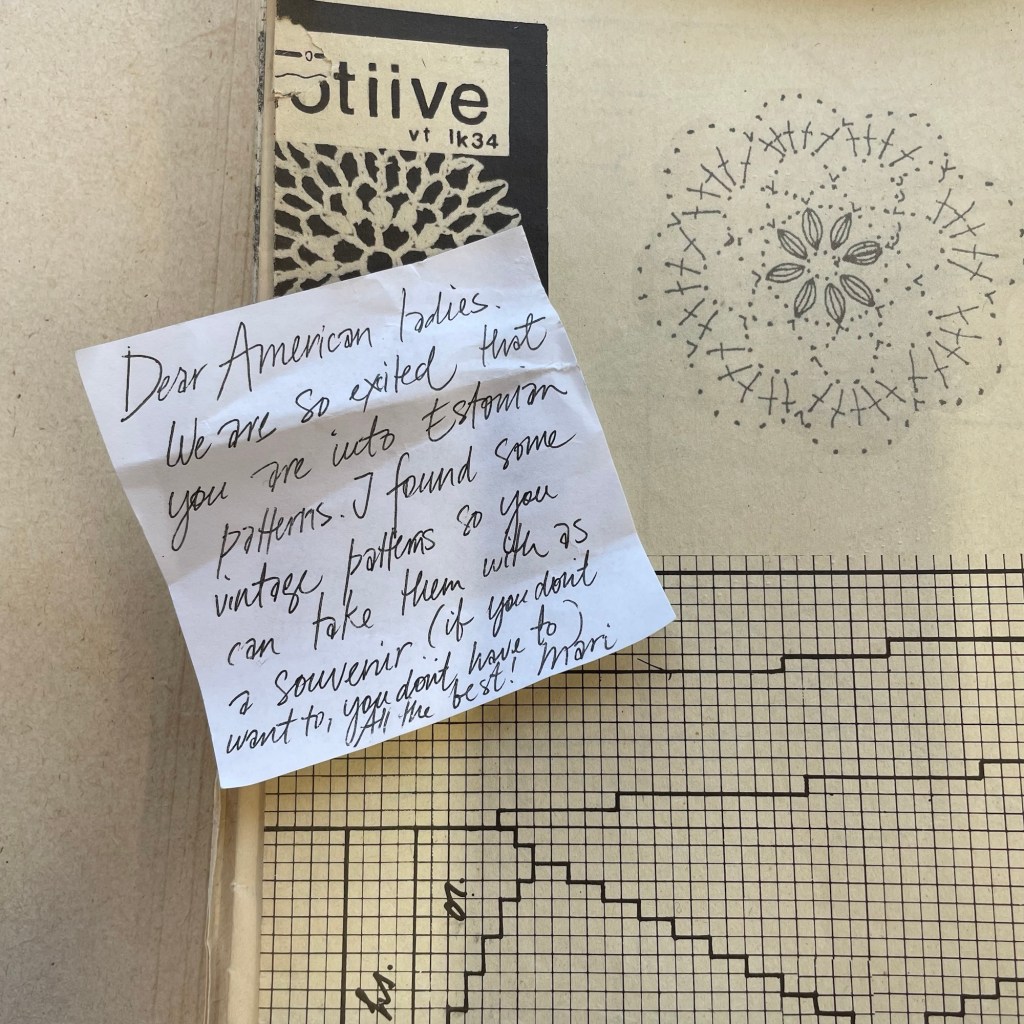 otiive
vt lk34
Dear American ladies.
We are so exited that
you are into Estonian
patterns. I found some
vintage patterns so you
can take them with as
a souvenir (if you don't
want to, you don't have to)
All the best! Mari
i.o.
hs.